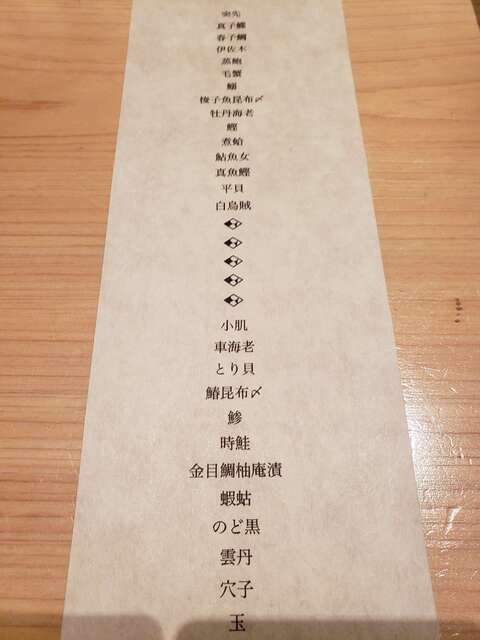 突先
真子鰈
春子鯛
伊佐木
蒸鮑
毛蟹
鰯
梭子魚昆布〆
牡丹海老
鰹
煮蛤
鮎魚女
真魚鰹
平貝
白烏賊
小肌
車海老
とり貝
鰆昆布〆
鯵
時鮭
金目鯛柚庵漬
蝦蛄
のど黒
雲丹
穴子
玉